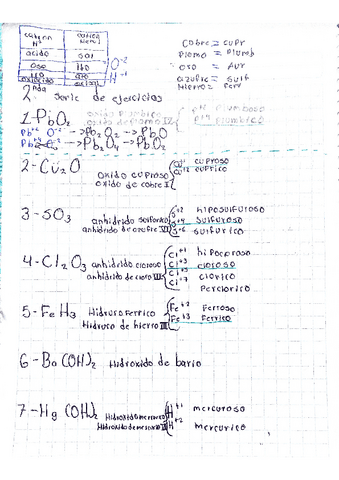 Cobre = cupr
Plomo = Plumb
oso = Aur
azufre = Sulf
Hierro = Ferr
acido
oso
ito
O⁻²
H⁻¹
2nda Serie de ejercicios
1-PbO₂ oxido Plumbico
oxido de plomo
plumboso
plumbico
Pb⁺² O⁻² → Pb₂O₂ → PbO
→ Pb₂O₄ → PbO₂
2-Cu₂O oxido cuproso
oxido de cobre I
Cu⁺¹ cuproso
Cu⁺² cuprico
3-SO₃ anhidrido sulfurico
anhidrido de azufre VI
S⁺² hiposulfuroso
S⁺⁴ sulfuroso
S⁺⁶ sulfurico
4-Cl₂O₃ anhidrido cloroso
anhidrido de cloro III
Cl⁺¹ hipocloroso
Cl⁺³ cloroso
Cl⁺⁵ clorico
Cl⁺⁷ Perclorico
5-FeH₃ Hidruro ferrico
Hidruro de hierro III
Fe⁺² Ferroso
Fe⁺³ Ferrico
6-Ba(OH)₂ Hidroxido de bario
7-Hg(OH)₂ Hidroxido mercurico
Hidroxido de mercurio II
H⁺¹ mercuroso
H⁺² mercurico